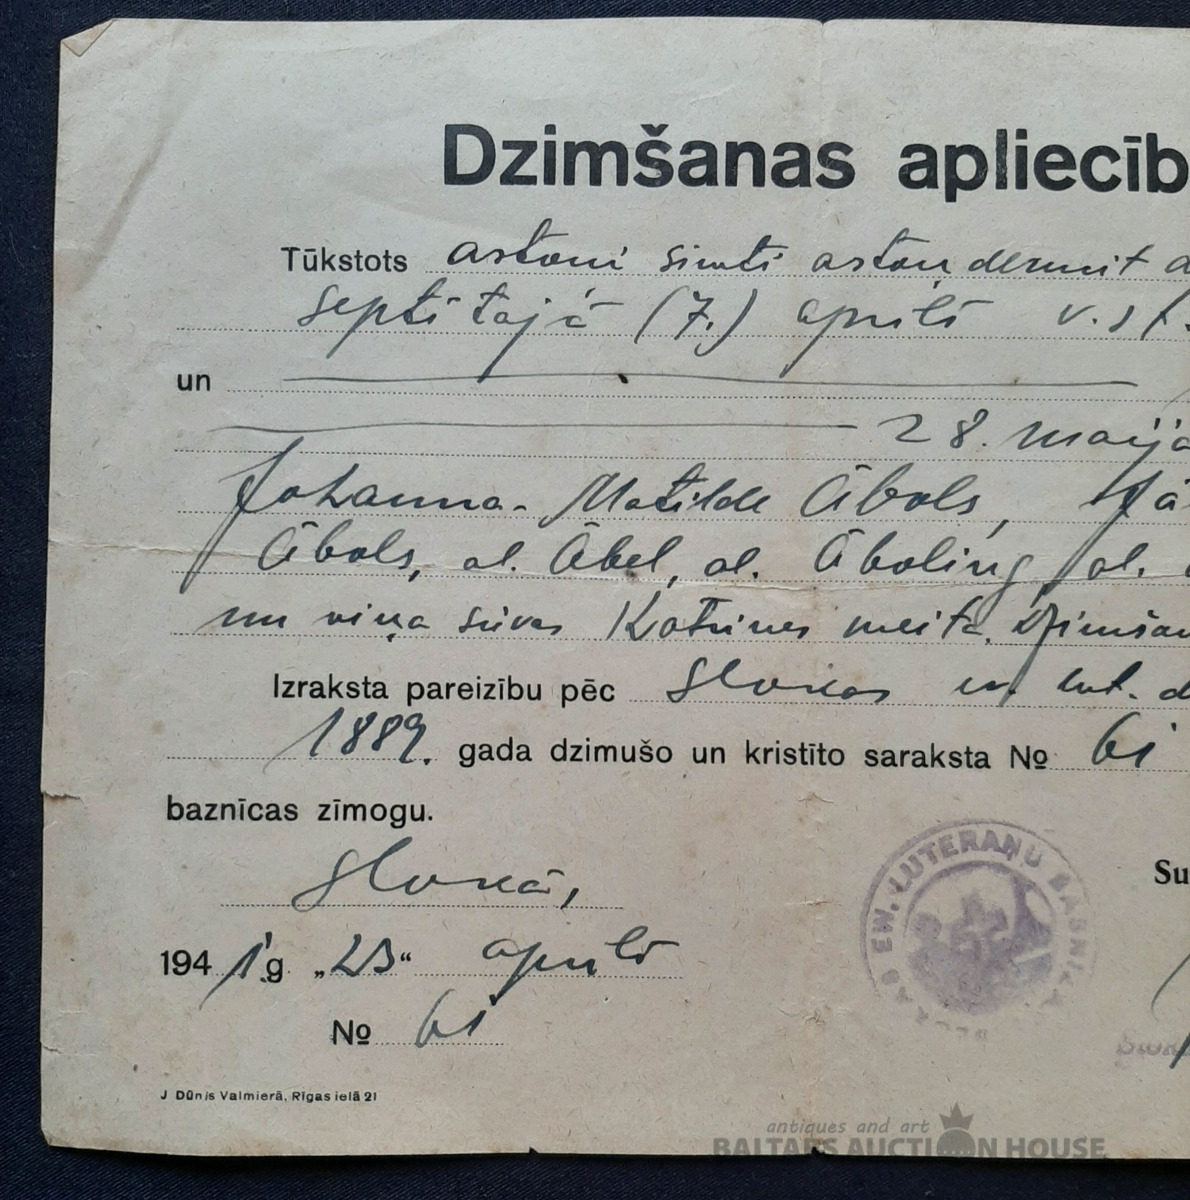 Dzimšanas apliecīb
Tūkstots astoņi simti astoņdesmit d
septītajā (7.) aprīlī v. st.
un
28. maijā
Johanna-Matilde Ābols, Jā
Ābols, al. Ābel, al. Āboliņ, al.
un viņa sievas Katrīnes meita. Dzimšan
Izraksta pareizību pēc Slokas ev. lut. d
1889. gada dzimušo un kristīto saraksta № 61
baznīcas zīmogu.
EW.-LUTERAŅU BASNIZA
Su
Slokā,
1941 g. „23“ aprīlī
№ 61
J Dūnis Valmierā, Rīgas ielā 21
antiques and art
BALTARS AUCTION HOUSE